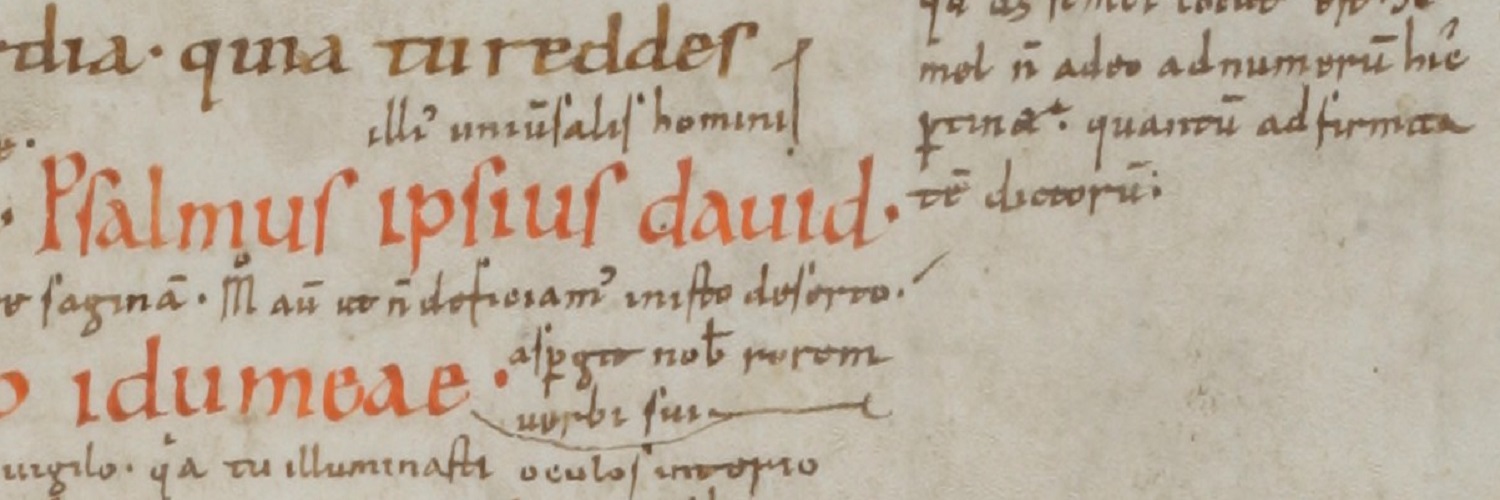 dia · quia tu reddes
illi᾽ uniūsalis hominis
Psalmus ipsius dauid ·
saginā · M̊ aū ut n̄ deficiam᾽ in isto deserto .
idumeae · aspergit nob̄ rorem
uerbi sui
uigilo · qͥa tu illuminasti oculos interio
mel n̄ adeo ad numerū hic
ꝑtinet · quantū ad firmita
tē dictorū :